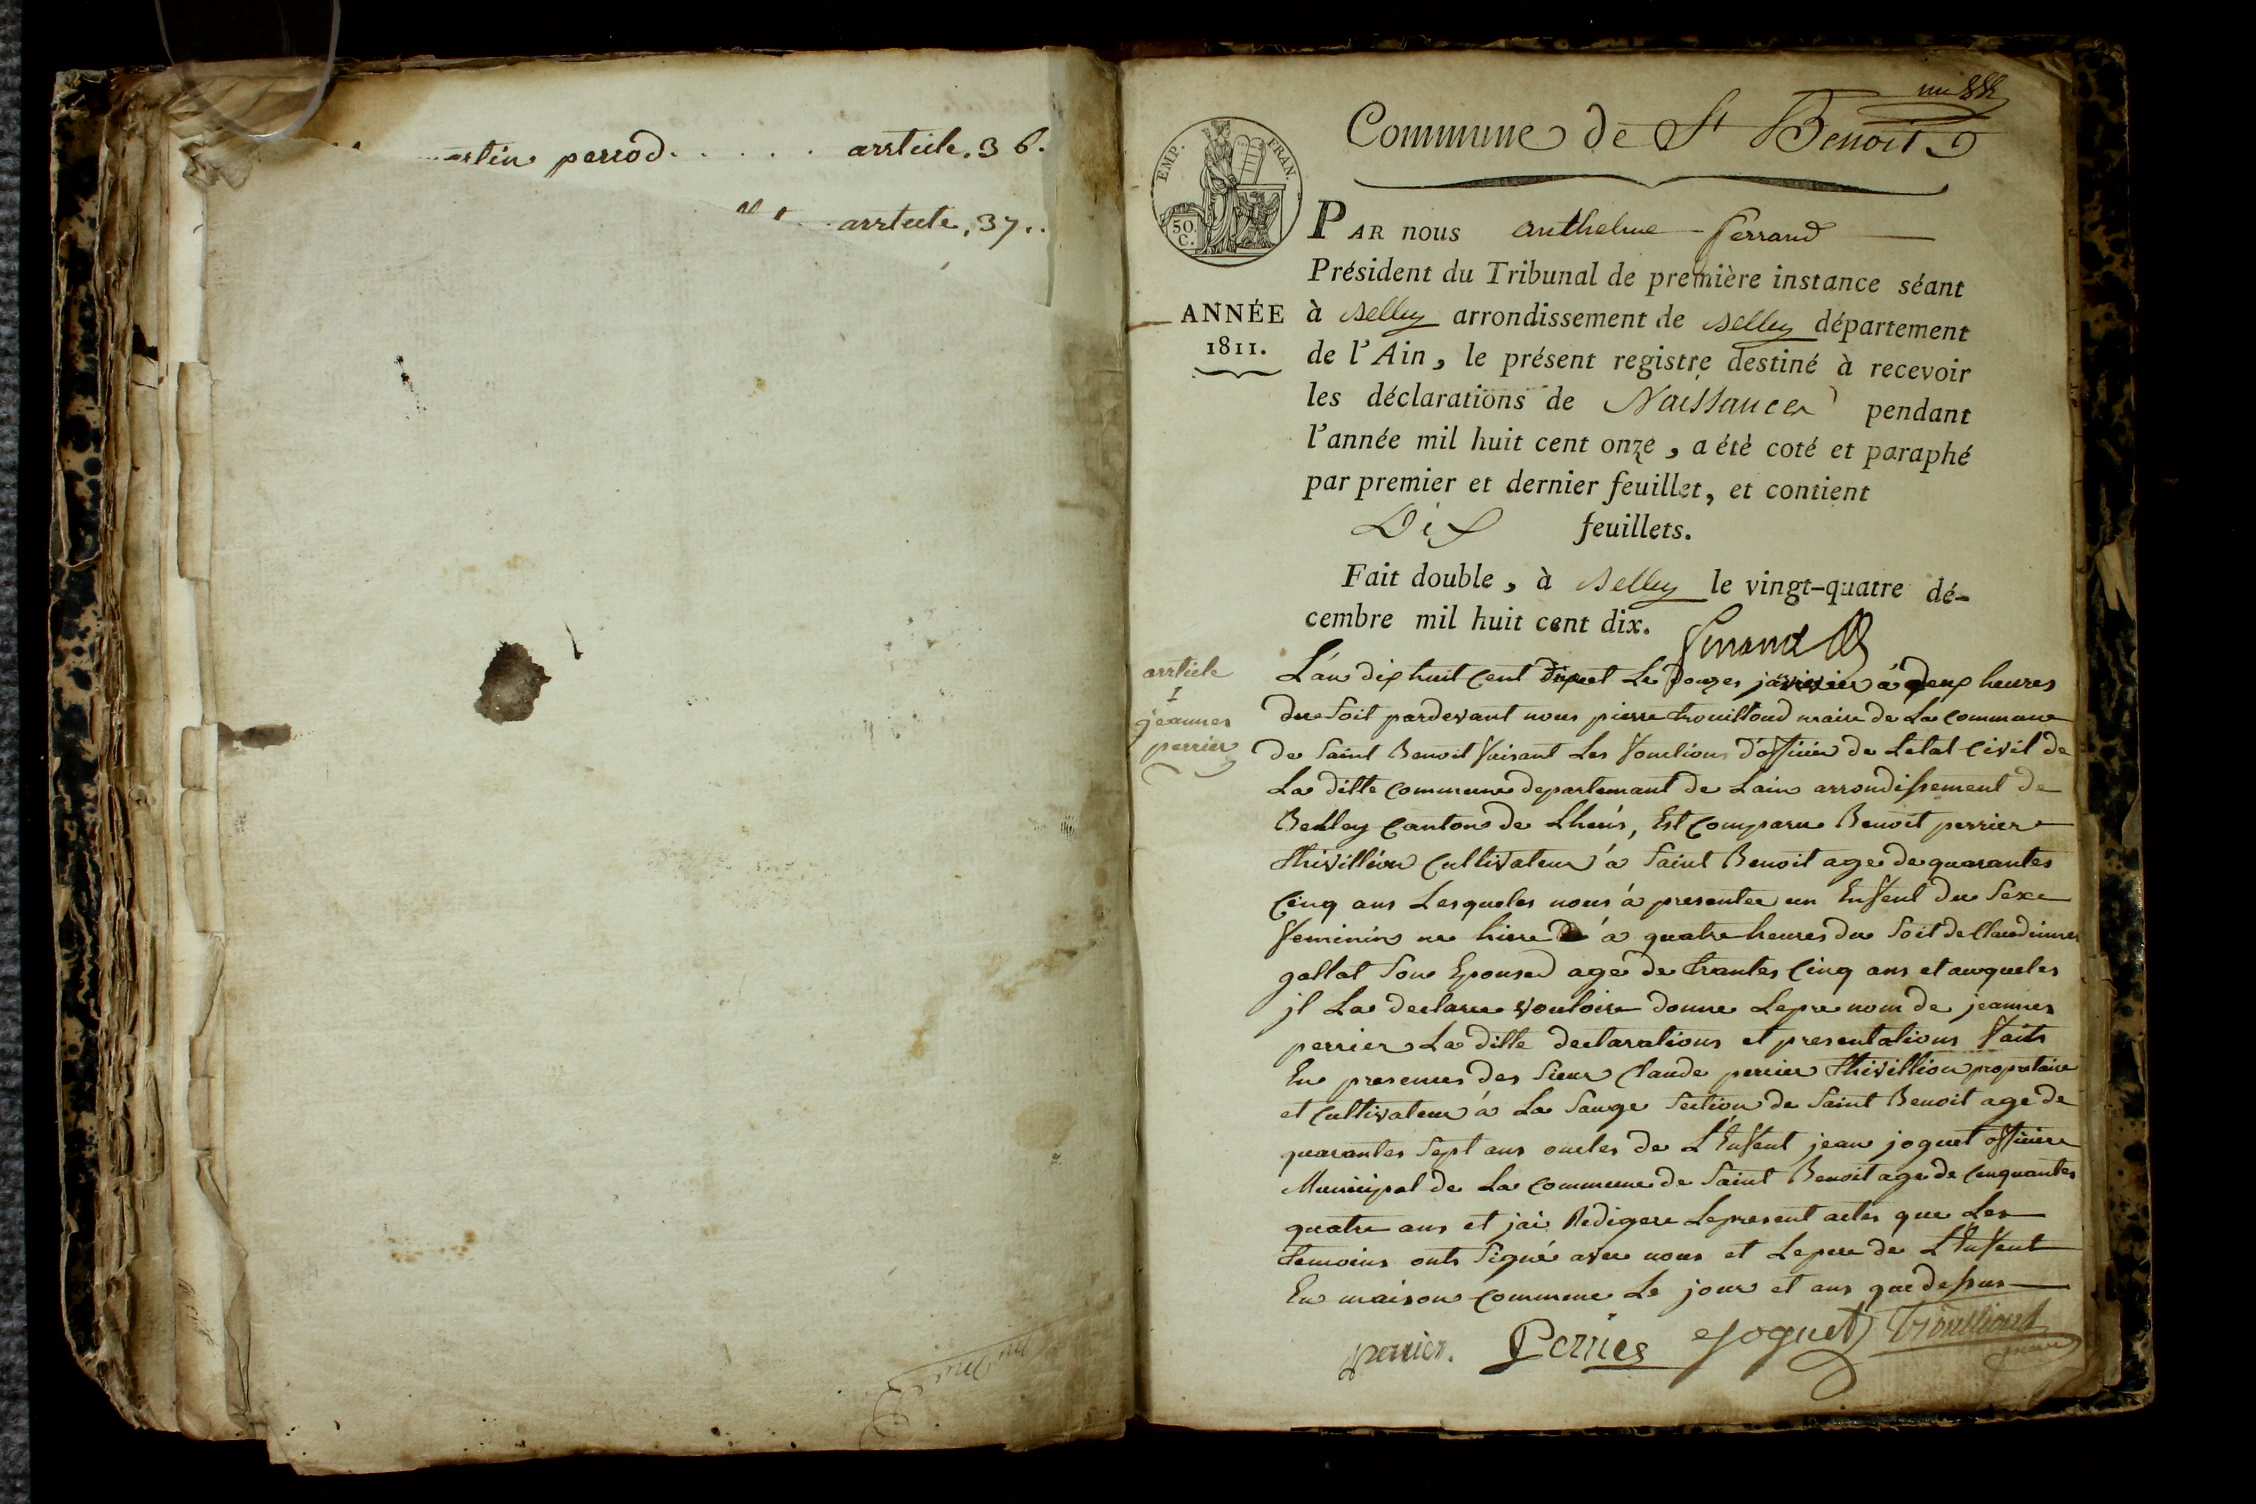 perrod . . . . . arsticle. 36.
arsticle, 37..
Commune de St Benoit
EMP. FRAN.
50 C.
PAR nous anthelme ferrand
Président du Tribunal de première instance séant
ANNÉE
1811.
à Belley arrondissement de Belley département
de l'Ain, le présent registre destiné à recevoir
les déclarations de Naissances pendant
l'année mil huit cent onze, a été coté et paraphé
par premier et dernier feuillet, et contient
Dix feuillets.
Fait double, à Belley le vingt-quatre dé-
cembre mil huit cent dix.
arsticle
1
jeannes
perrier
L'an dix huit Cent Le douzes janvier à deux heures
du Soit pardevant nous pierre trouilloud maire de La Commune
de Saint Benoit faisant Les fonctions d'officier de Letat Civil de
La ditte Commune departemant de Lain arrondissement de
Belley Canton de Lhuis, Est Comparu Benoit perrier
thivillion Cultivateur à Saint Benoit age de quarantes
Cinq ans Lesqueles nous à presentee un Enfent du Sexe
feminin ne hiere à quatre heures du Soit de Claudinnes
gallat Son Epouse age de trantes Cinq ans et auqueles
jl La declaree vouloire donne Lepre nom de jeannes
perrier La ditte declarations et presentations faits
En presences des Sieur Claude perrier thivillion propretaire
et Cultivateur à La Sauge Section de Saint Benoit age de
quarantes Sept ans oncles de L'Enfent jean joguet officiere
Municipal de La Commune de Saint Benoit age de Cinquantes
quatre ans et jai Redigere Lepresent actes que Les
temoins onts Signé avec nous et Lepere de L'Enfent
En maison Commune Le jour et ans que dessus
perrier. Perrier Joguet Trouilloud
maire